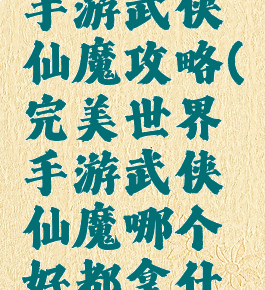 手游武侠
仙魔攻略(
完美世界
手游武侠
仙魔哪个
好都拿什